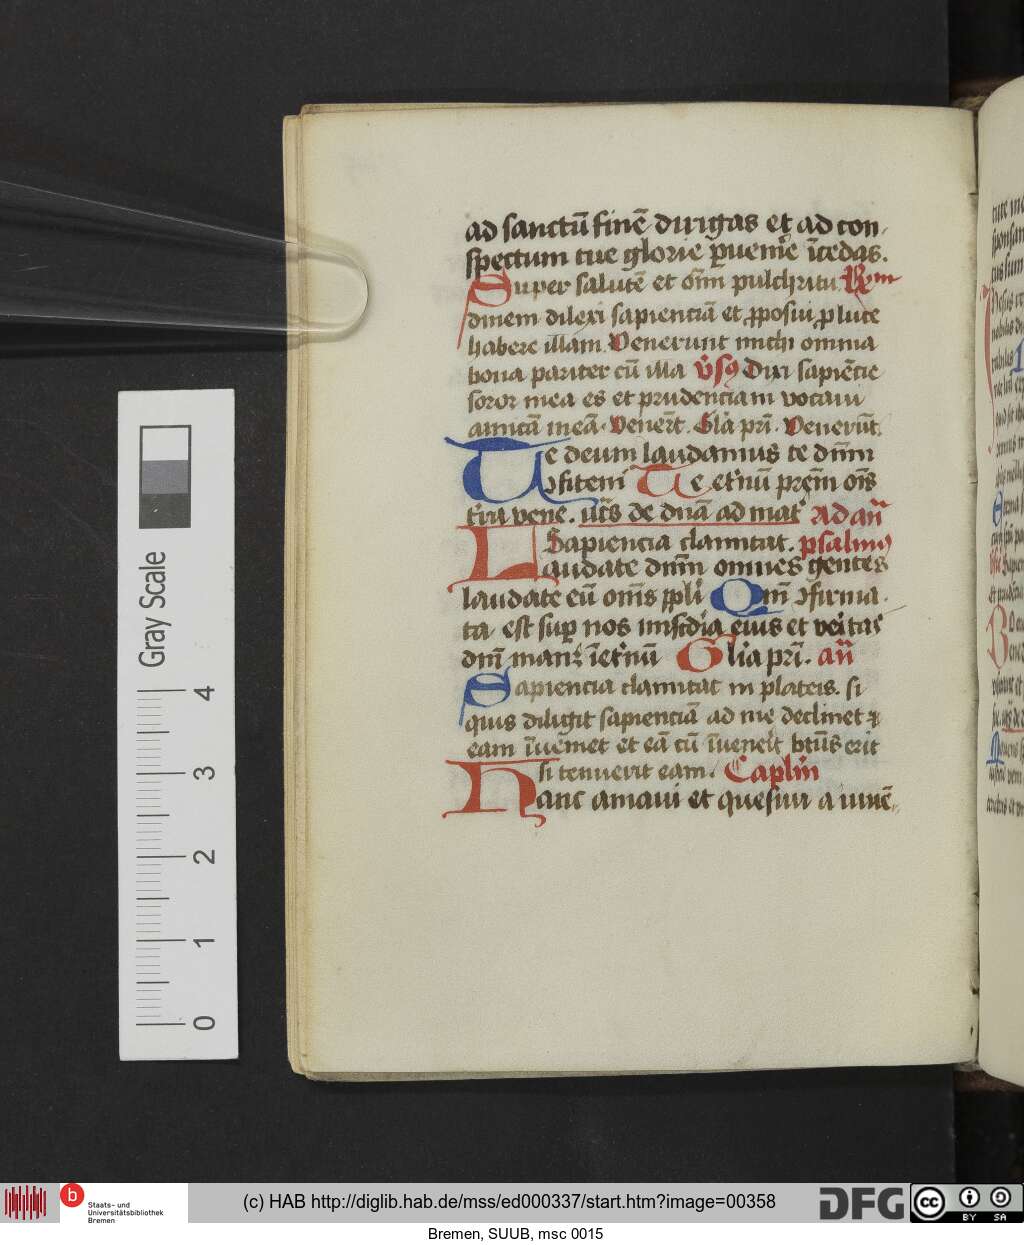 ad sanctū finē dirigas et ad con
spectum tue glorie puenire ĩcedas.
Super salutē et om̄ pulchritu. Rem
dinem dilexi sapienciā et pposui p luce
habere illam. Venerunt michi omnia
bona pariter cū illa v̄sꝯ Dixi sapiēcie
soror mea es et prudenciam vocaui
amicā meā. Venert̄. Gl̄a pri. Venerūt.
Te deum laudamus te dn̄m
ꝯfitem̄ Te et̄nū prem̄ om̄s
tr̄a vene. ut s̄ de dn̄a ad mat̄ ad an̄
Sapiencia clamitat. psalmꝯ
Laudate dn̄m omnes gentes
laudate eū om̄s ppl̄i Qm̄ ꝯfirma
ta est sup nos mis̄cdia eius et veitas
dn̄i man& ĩet̄nū Gl̄ia pri. an̄
Sapiencia clamitat in plateis. si
quis diligit sapienciā ad me declinet ⁊
eam ĩueniet et eā cū ĩuenerit b̄tus erit
si tenuerit eam. Caplm̄
Hanc amaui et quesiui a iuuē
Gray Scale
4
3
2
1
0
b
Staats- und
Universitätsbibliothek
Bremen
(c) HAB http://diglib.hab.de/mss/ed000337/start.htm?image=00358
DFG
cc
BY SA
Bremen, SUUB, msc 0015